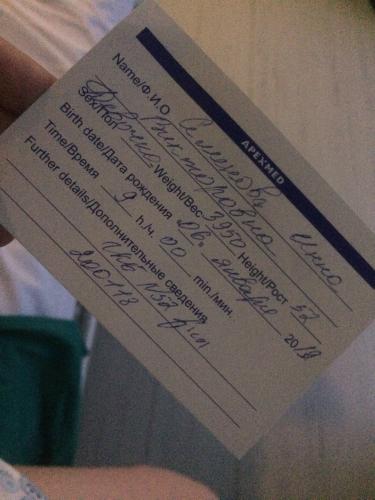 APEXMED
Name/Ф.И.О Семенова Инна
Викторовна
Sex/Пол Девочка Weight/Вес 3950 Height/Рост 52
Birth date/Дата рождения 06. января 20
Time/Время 9 h./ч. 00 min./мин.
Further details/Дополнительные сведения